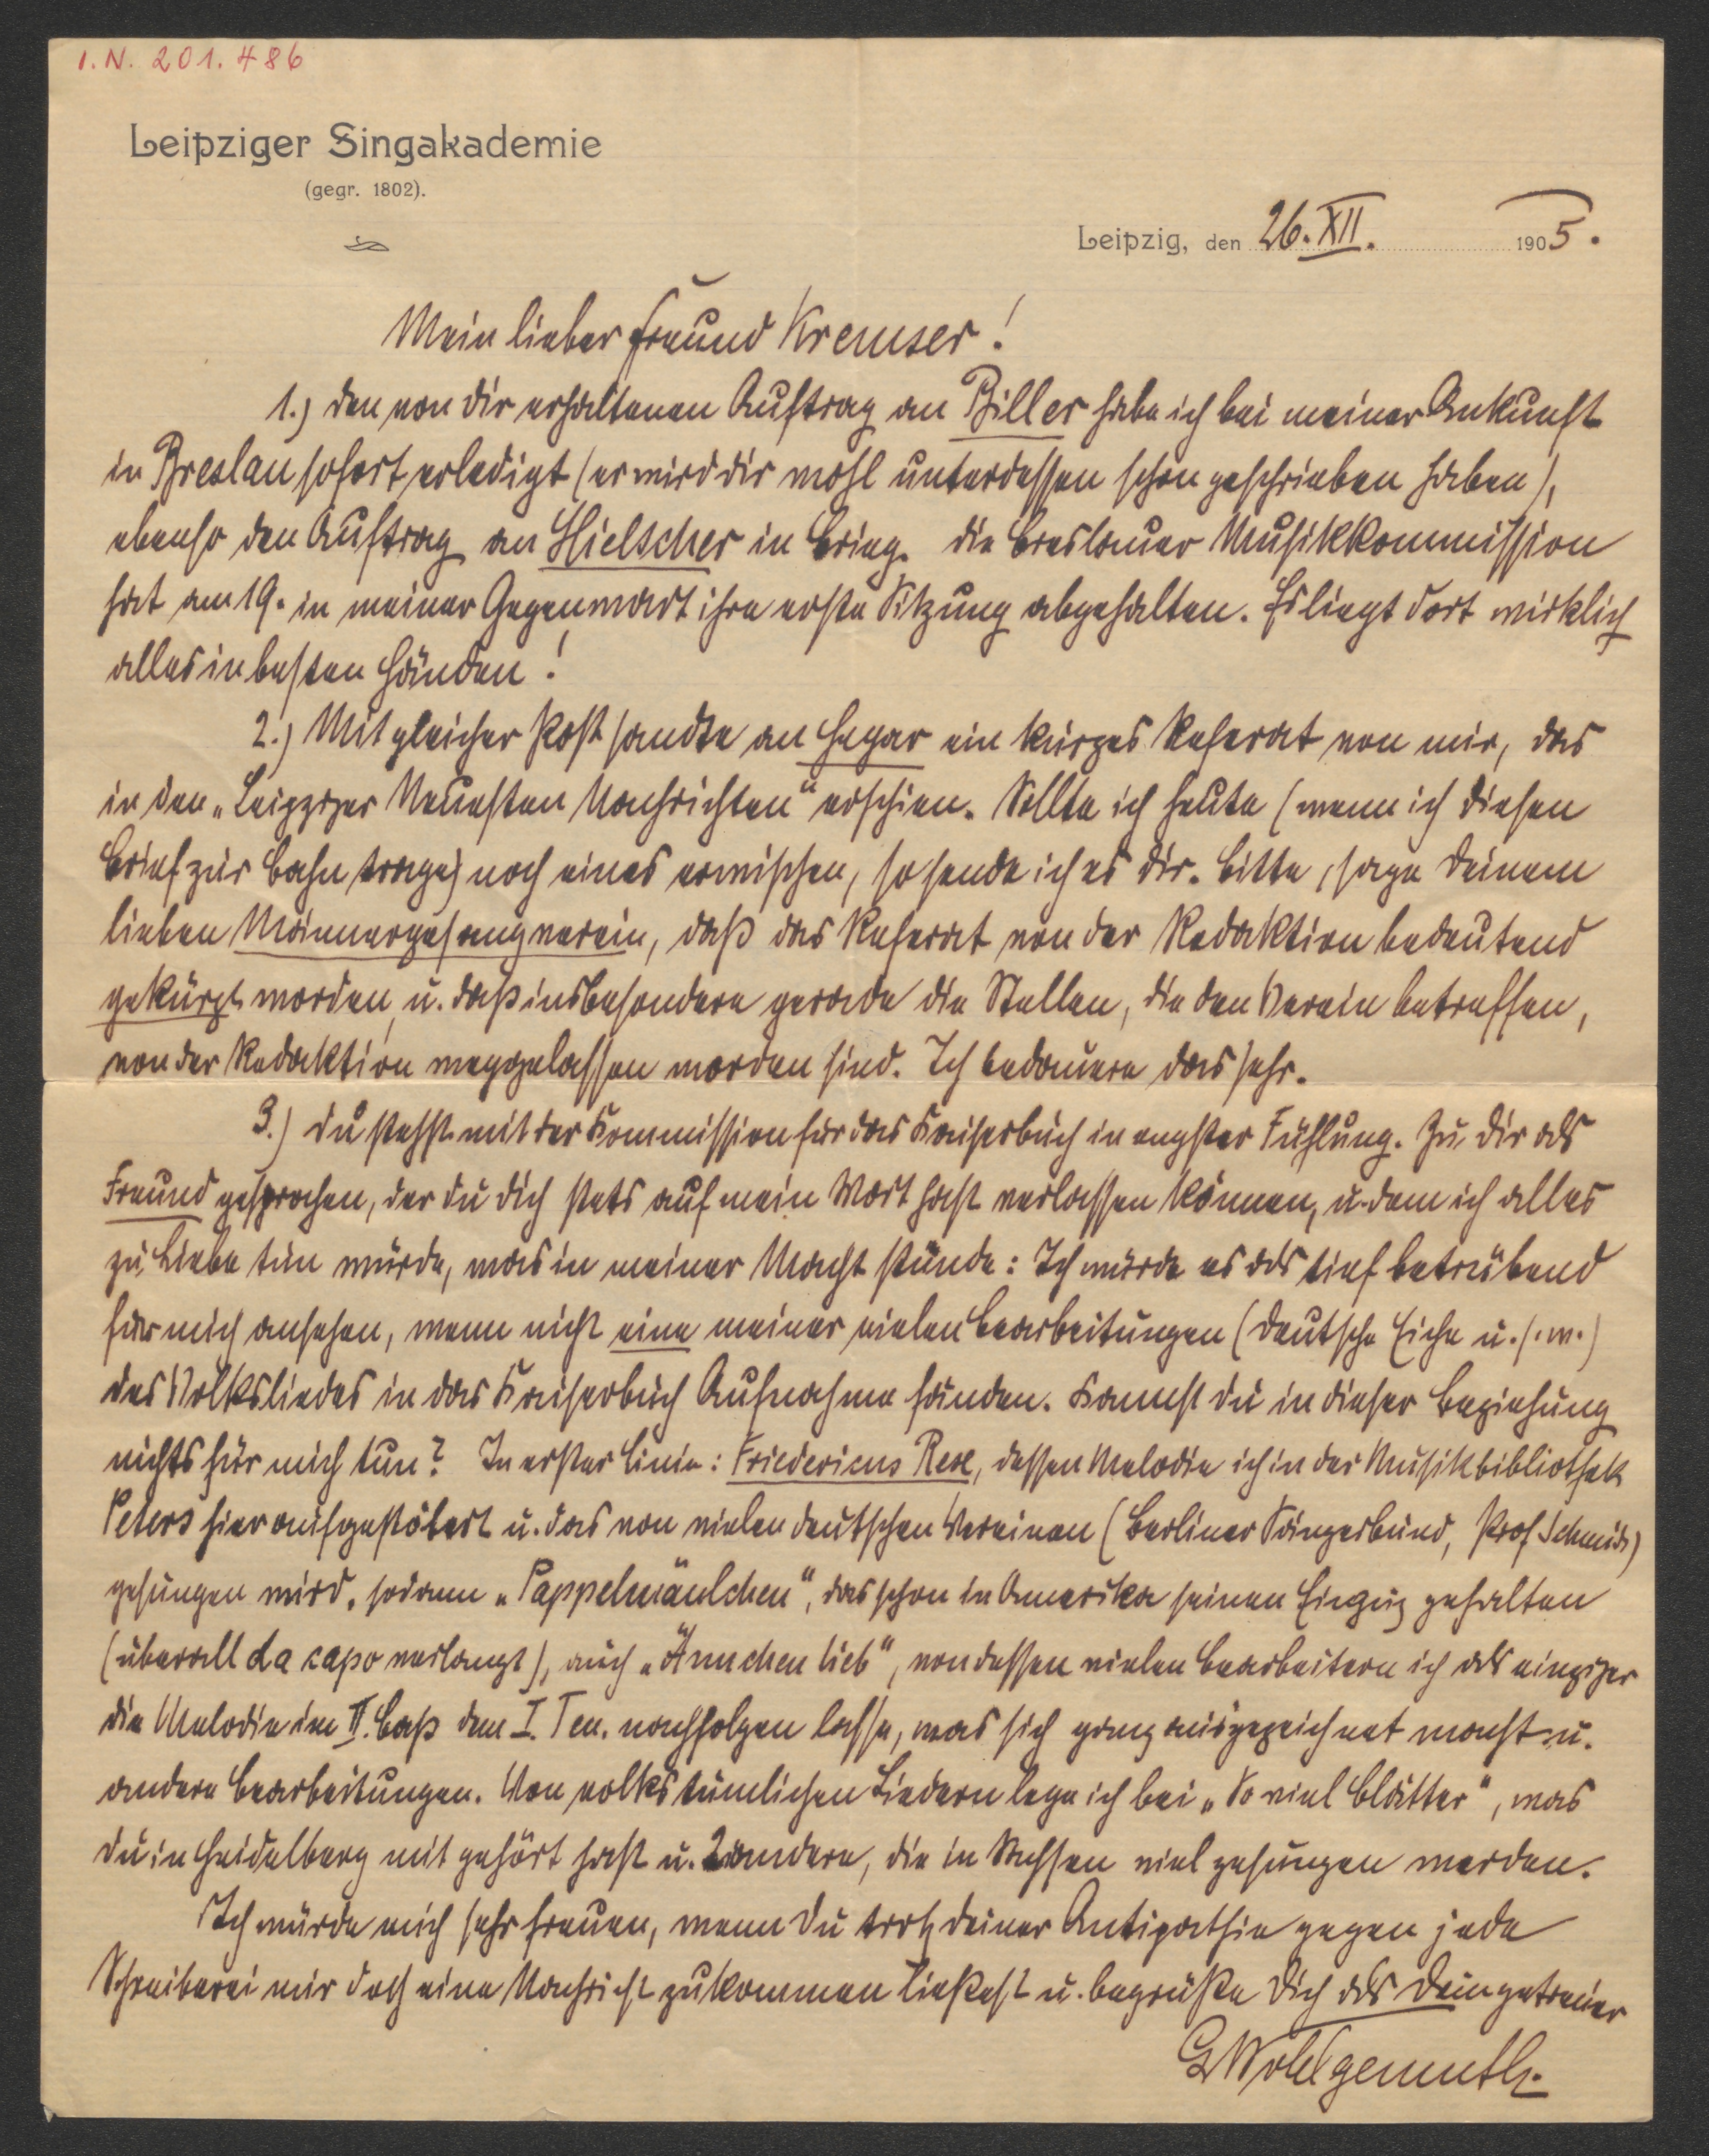 I.N. 201.486
Leipziger Singakademie
(gegr. 1802).
Leipzig, den 26. XII. 1905.
Mein lieber Freund Kremser!
1.) Den von dir erhaltenen Auftrag an Biller habe ich bei meiner Ankunft
in Breslau sofort erledigt (er wird dir wohl unterdessen schon geschrieben haben),
ebenso den Auftrag an Hielscher in Brieg. Die Breslauer Musikkommission
hat am 19. in meiner Gegenwart ihre erste Sitzung abgehalten. Es liegt dort wirklich
alles in besten Händen!
2.) Mit gleicher Post sandte an Hegar ein kurzes Referat von mir, das
in den „Leipziger Neuesten Nachrichten“ erschien. Sollte ich heute (wenn ich diesen
Brief zur Bahn trage) noch eines erwischen, so sende ich es dir. Bitte, sage deinem
lieben Männergesangverein, daß das Referat von der Redaktion bedeutend
gekürzt worden, u. daß insbesondere gerade die Stellen, die den Verein betreffen,
von der Redaktion weggelassen worden sind. Ich bedauere das sehr.
3.) Du stehst mit der Kommission für das Kaiserbuch in engster Fühlung. Zu dir als
Freund gesprochen, der du dich stets auf mein Wort hast verlassen können, u. dem ich alles
zu Liebe tun würde, was in meiner Macht stünde: Ich würde es als tief betrübend
für mich ansehen, wenn nicht eine meiner vielen Bearbeitungen (Deutsche Eiche u. s. w.)
des Volksliedes in das Kaiserbuch Aufnahme fänden. Kannst du in dieser Beziehung
nichts für mich tun? In erster Linie: Fridericus Rex, dessen Melodie ich in der Musikbibliothek
Peters hier aufgestöbert u. das von vielen deutschen Vereinen (Berliner Sängerbund, Prof. Schmidt)
gesungen wird, sodann „Pappelmäulchen“, das schon in Amerika seinen Einzug gehalten
(überall da capo verlangt), auch „Ännchen lieb“, von dessen vielen Bearbeitern ich als einziger
die Melodie im II. Baß dem I. Ten. nachfolgen lasse, was sich ganz ausgezeichnet macht u.
andere Bearbeitungen. Von volkstümlichen Liedern lege ich bei „So viel Blätter“, was
du in Heidelberg mit gehört hast u. 2 andere, die in Sachsen viel gesungen werden.
Ich würde mich sehr freuen, wenn du trotz deiner Antipathie gegen jede
Schreiberei mir doch eine Nachricht zukommen ließest u. begrüße dich als dein getreuer
G Wohlgemuth.